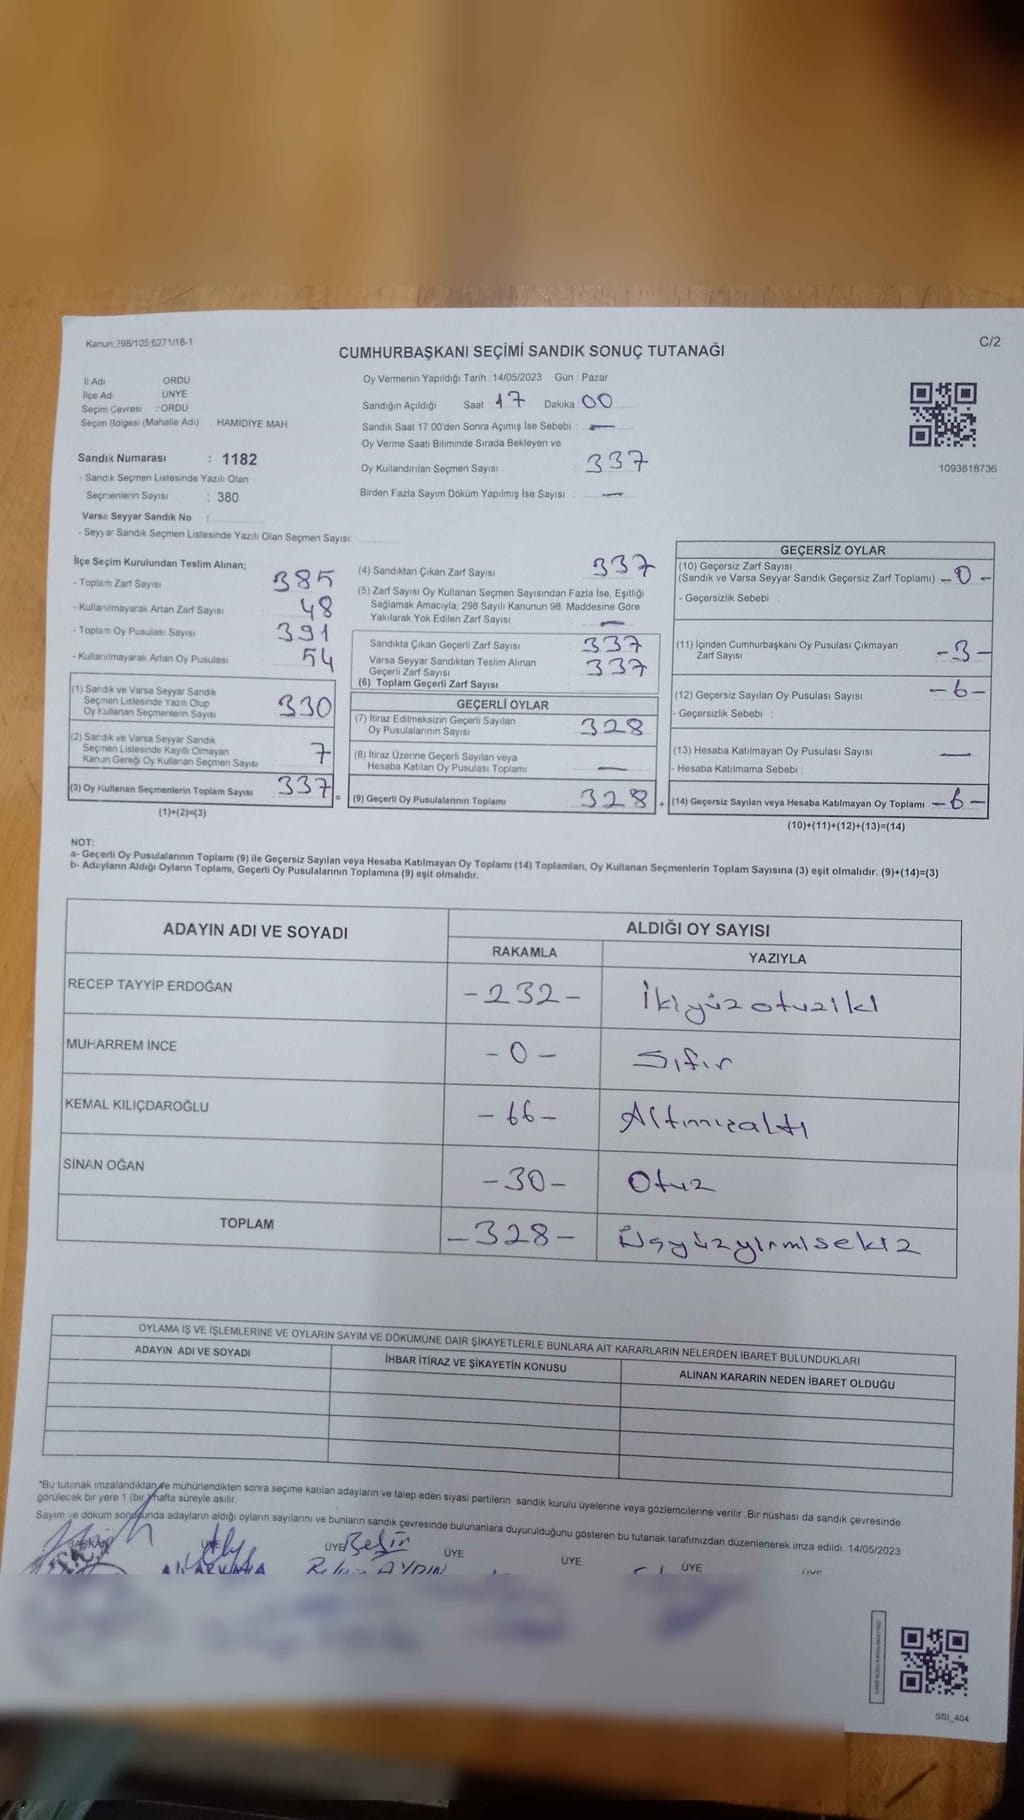 Kanun:298/105;6271/18-1
C/2
CUMHURBAŞKANI SEÇİMİ SANDIK SONUÇ TUTANAĞI
İl Adı ORDU
İlçe Ad ÜNYE
Seçim Çevresi : ORDU
Seçim Bölgesi (Mahalle Adı) : HAMİDİYE MAH.
Oy Vermenin Yapıldığı Tarih : 14/05/2023 Gün : Pazar
Sandığın Açıldığı Saat 17 Dakika 00
Sandık Saat 17:00'den Sonra Açımış İse Sebebi : —
Oy Verme Saati Bitiminde Sırada Bekleyen ve
Oy Kullandırılan Seçmen Sayısı : 337
Birden Fazla Sayım Döküm Yapılmış İse Sayısı : —
1093818736
Sandık Numarası : 1182
- Sandık Seçmen Listesinde Yazılı Olan
Seçmenlerin Sayısı : 380
Varsa Seyyar Sandık No :
- Seyyar Sandık Seçmen Listesinde Yazılı Olan Seçmen Sayısı:
İlçe Seçim Kurulundan Teslim Alınan;
- Toplam Zarf Sayısı 385
- Kullanılmayarak Artan Zarf Sayısı 48
- Toplam Oy Pusulası Sayısı 391
- Kullanılmayarak Artan Oy Pusulası 54
(1) Sandık ve Varsa Seyyar Sandık
Seçmen Listesinde Yazılı Olup
Oy Kullanan Seçmenlerin Sayısı 330
(2) Sandık ve Varsa Seyyar Sandık
Seçmen Listesinde Kayıtlı Olmayan
Kanun Gereği Oy Kullanan Seçmen Sayısı 7
(3) Oy Kullanan Seçmenlerin Toplam Sayısı 337 =
(1)+(2)=(3)
(4) Sandıktan Çıkan Zarf Sayısı 337
(5) Zarf Sayısı Oy Kullanan Seçmen Sayısından Fazla İse, Eşitliği
Sağlamak Amacıyla; 298 Sayılı Kanunun 98. Maddesine Göre
Yakılarak Yok Edilen Zarf Sayısı —
Sandıkta Çıkan Geçerli Zarf Sayısı 337
Varsa Seyyar Sandıktan Teslim Alınan
Geçerli Zarf Sayısı 337
(6) Toplam Geçerli Zarf Sayısı
GEÇERLİ OYLAR
(7) İtiraz Edilmeksizin Geçerli Sayılan
Oy Pusulalarının Sayısı 328
(8) İtiraz Üzerine Geçerli Sayılan veya
Hesaba Katılan Oy Pusulası Toplamı —
(9) Geçerli Oy Pusulalarının Toplamı 328 +
GEÇERSİZ OYLAR
(10) Geçersiz Zarf Sayısı
(Sandık ve Varsa Seyyar Sandık Geçersiz Zarf Toplamı) -0-
- Geçersizlik Sebebi :
(11) İçinden Cumhurbaşkanı Oy Pusulası Çıkmayan
Zarf Sayısı -3-
(12) Geçersiz Sayılan Oy Pusulası Sayısı -6-
- Geçersizlik Sebebi :
(13) Hesaba Katılmayan Oy Pusulası Sayısı —
- Hesaba Katılmama Sebebi :
(14) Geçersiz Sayılan veya Hesaba Katılmayan Oy Toplamı -6-
(10)+(11)+(12)+(13)=(14)
NOT:
a- Geçerli Oy Pusulalarının Toplamı (9) ile Geçersiz Sayılan veya Hesaba Katılmayan Oy Toplamı (14) Toplamları, Oy Kullanan Seçmenlerin Toplam Sayısına (3) eşit olmalıdır. (9)+(14)=(3)
b- Adayların Aldığı Oyların Toplamı, Geçerli Oy Pusulalarının Toplamına (9) eşit olmalıdır.
ADAYIN ADI VE SOYADI
ALDIĞI OY SAYISI
RAKAMLA YAZIYLA
RECEP TAYYİP ERDOĞAN -232- İkiyüzotuziki
MUHARREM İNCE -0- Sıfır
KEMAL KILIÇDAROĞLU -66- Altmışaltı
SİNAN OĞAN -30- Otuz
TOPLAM -328- Üçyüzyirmisekiz
OYLAMA İŞ VE İŞLEMLERİNE VE OYLARIN SAYIM VE DÖKÜMÜNE DAİR ŞİKAYETLERLE BUNLARA AİT KARARLARIN NELERDEN İBARET BULUNDUKLARI
ADAYIN ADI VE SOYADI İHBAR İTİRAZ VE ŞİKAYETİN KONUSU ALINAN KARARIN NEDEN İBARET OLDUĞU
*Bu tutanak imzalandıktan ve mühürlendikten sonra seçime katılan adayların ve talep eden siyasi partilerin sandık kurulu üyelerine veya gözlemcilerine verilir. Bir nüshası da sandık çevresinde
görülecek bir yere 1 (bir) hafta süreyle asılır.
Sayım ve döküm sonucunda adayların aldığı oyların sayılarını ve bunların sandık çevresinde bulunanlara duyurulduğunu gösteren bu tutanak tarafımızdan düzenlenerek imza edildi. 14/05/2023
BAŞKAN ÜYE ÜYE ÜYE ÜYE ÜYE
AYDIN
SSI_404